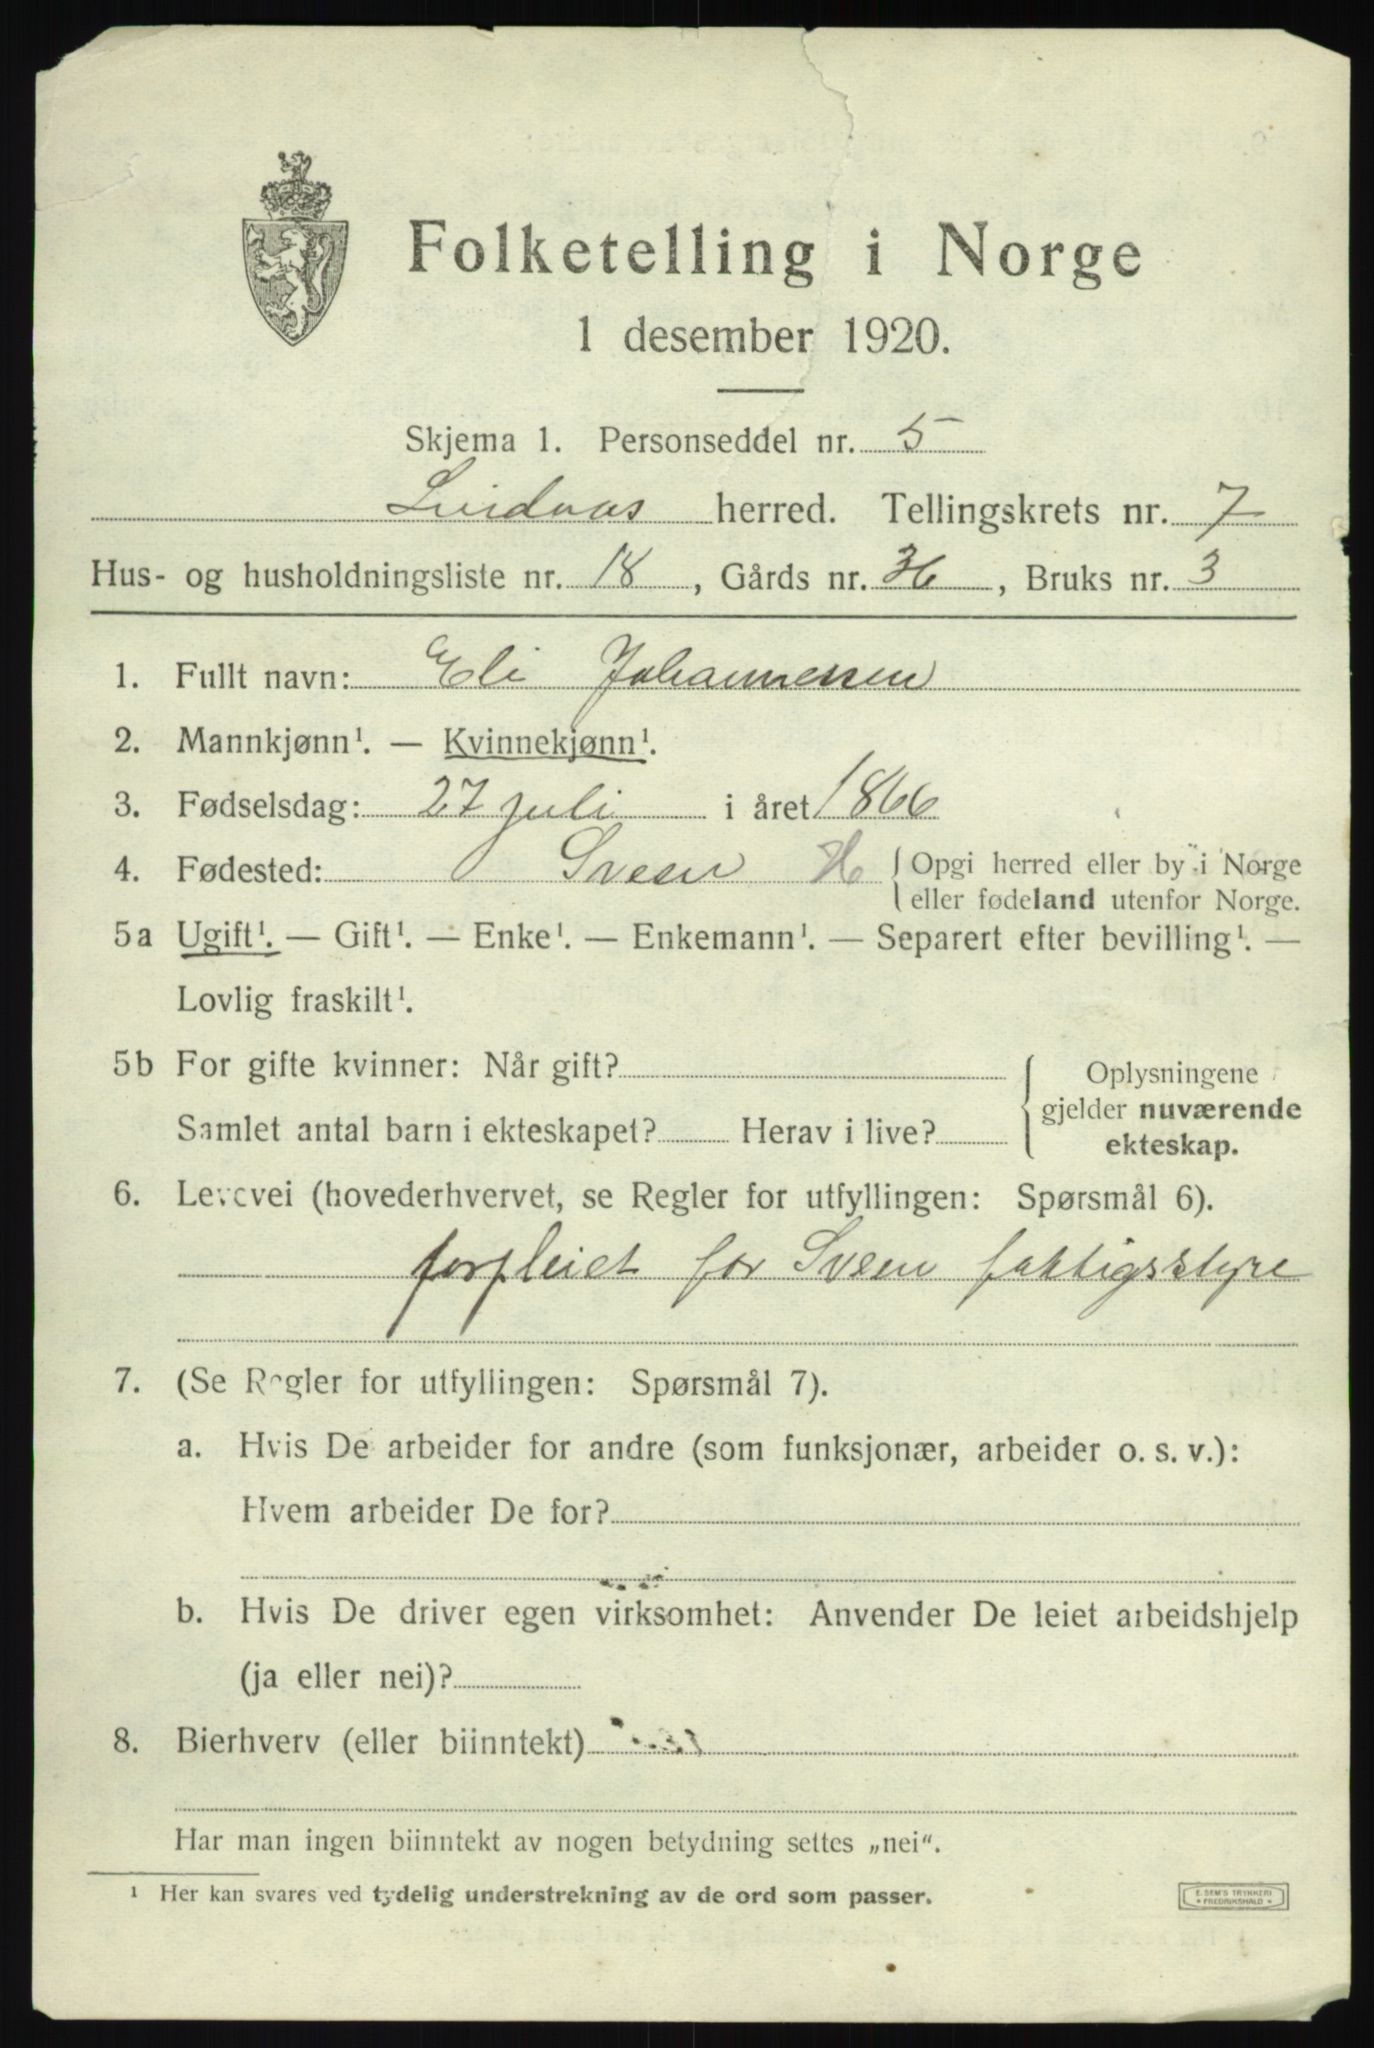 Folketelling i Norge
1 desember 1920.
Skjema 1. Personseddel nr. 5
Lindaas herred. Tellingskrets nr. 7
Hus- og husholdningsliste nr. 18, Gårds nr. 36, Bruks nr. 3
1. Fullt navn: Eli Johannessen
2. Mannkjønn¹. — Kvinnekjønn¹.
3. Fødselsdag: 27 juli i året 1866
4. Fødested: H { Opgi herred eller by i Norge
eller fødeland utenfor Norge.
5a Ugift¹. — Gift¹. — Enke¹. — Enkemann¹. — Separert efter bevilling¹. —
Lovlig fraskilt¹.
5b For gifte kvinner: Når gift? { Oplysningene
gjelder nuværende
Samlet antal barn i ekteskapet? Herav i live?
ekteskap.
6. Levevei (hovederhvervet, se Regler for utfyllingen: Spørsmål 6).
forpleiet for fattigstyre
7. (Se Regler for utfyllingen: Spørsmål 7).
a. Hvis De arbeider for andre (som funksjonær, arbeider o. s. v.):
Hvem arbeider De for?
b. Hvis De driver egen virksomhet: Anvender De leiet arbeidshjelp
(ja eller nei)?
8. Bierhverv (eller biinntekt)
Har man ingen biinntekt av nogen betydning settes „nei“.
¹ Her kan svares ved tydelig understrekning av de ord som passer.
E. SEM'S TRYKKERI
* FREDRIKSHALD *